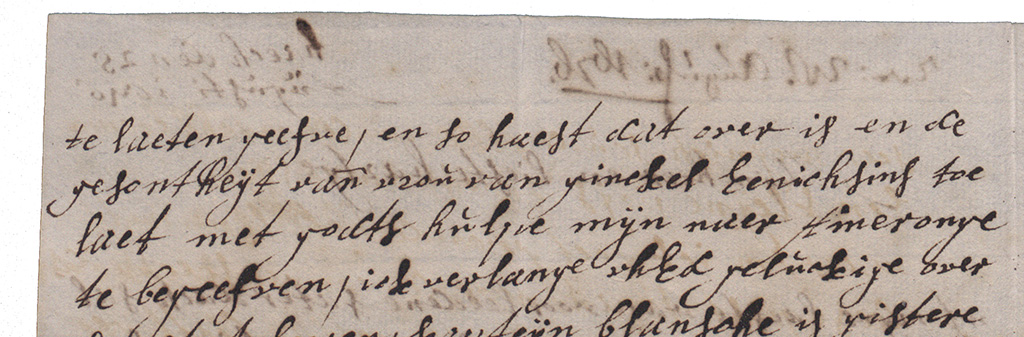 te laeten geefve, en so haest dat over is en de
gesontheyt van vrou van ginckel eenichsins toe
laet met godts hulpe mijn naer Ameronge
te begeefven, ick verlange uhEd geluckige over
blansche is gistere